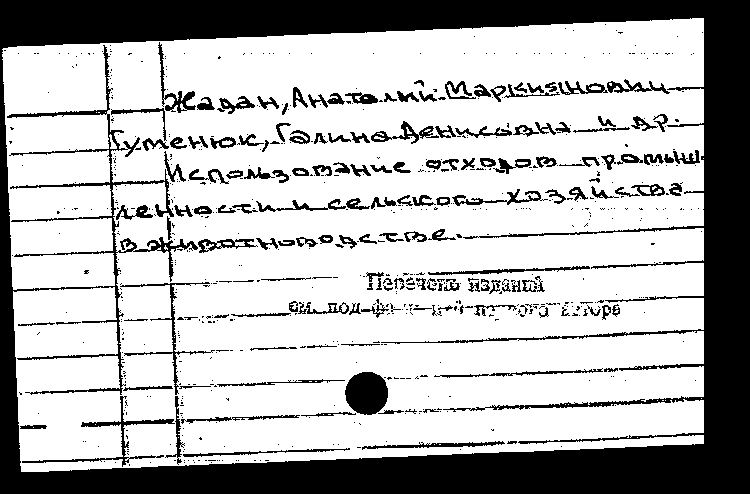 Жадан, Анатолий Маркиянович
Гутенюк, Галина Денисовна и др.
Использование отходов промыш-
ленности и сельского хозяйства
в животноводстве.
Перечень изданий
см. под первого автора